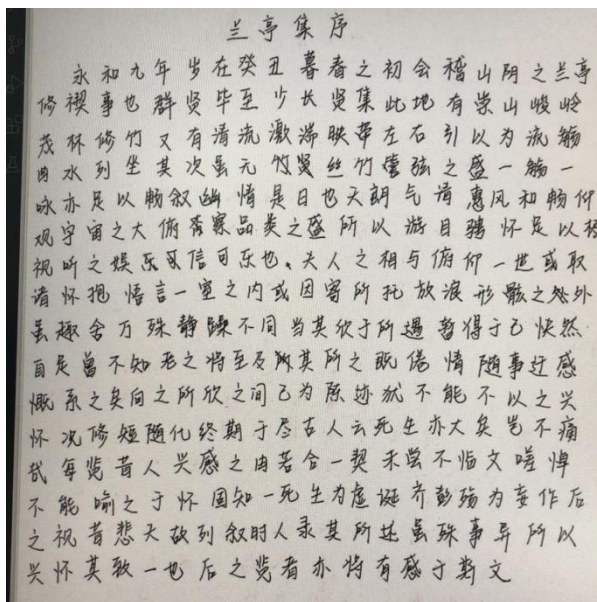 兰亭集序
永和九年岁在癸丑暮春之初会稽山阴之兰亭
修禊事也群贤毕至少长贤集此地有崇山峻岭
茂林修竹又有清流激湍映带左右引以为流觞
曲水列坐其次虽无竹贤丝竹管弦之盛一觞一
咏亦足以畅叙幽情是日也天朗气清惠风和畅仰
观宇宙之大俯察品类之盛所以游目骋怀足以极
视听之娱乐可信可乐也、夫人之相与俯仰一世或取
诸怀抱悟言一室之内或因寄所托放浪形骸之外
虽趣舍万殊静躁不同当其欣于所遇暂得于己快然
自足曾不知老之将至及其所之既倦情随事迁感
慨系之矣向之所欣之间已为陈迹犹不能不以之兴
怀况修短随化终期于尽古人云死生亦大矣岂不痛
哉每览昔人兴感之由若合一契未尝不临文嗟悼
不能喻之于怀固知一死生为虚诞齐彭殇为妄作后
之视昔悲夫故列叙时人录其所述虽殊事异所以
兴怀其致一也后之览者亦将有感于斯文